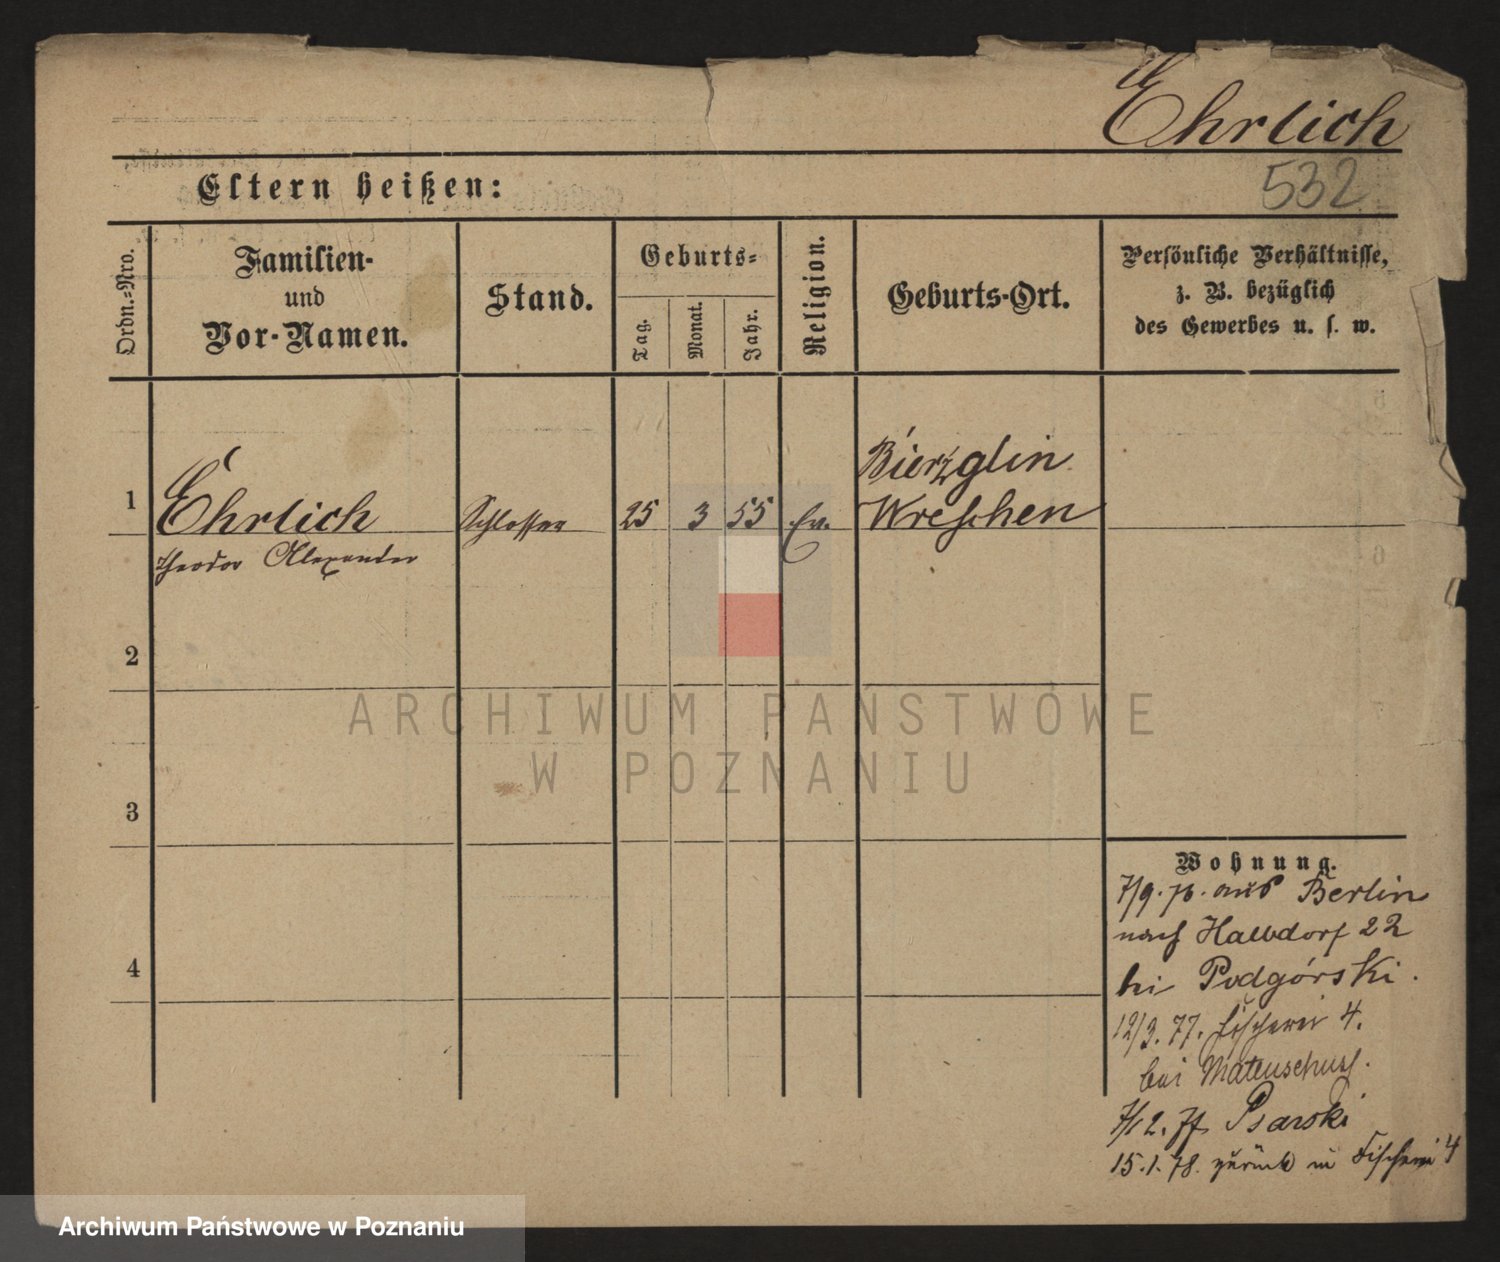 Ehrlich
532
Eltern heißen:
Ordn.-Nro.
Familien-
und
Vor-Namen.
Stand.
Geburts-
Tag.
Monat.
Jahr.
Religion.
Geburts-Ort.
Persönliche Verhältnisse,
z. B. bezüglich
des Gewerbes u. s. w.
1
Ehrlich
Theodor Alexander
Schlosser
25
3
55
Ev.
Bierzglin
Wreschen
2
3
4
Wohnung.
7/9. 76. aus Berlin
nach Halbdorf 22
bei Podgórski.
12/3. 77. Fischerei 4.
bei
7/12. 77 Psarski
15.1.78. zurück in Fischerei 4
ARCHIWUM PAŃSTWOWE
W POZNANIU
Archiwum Państwowe w Poznaniu